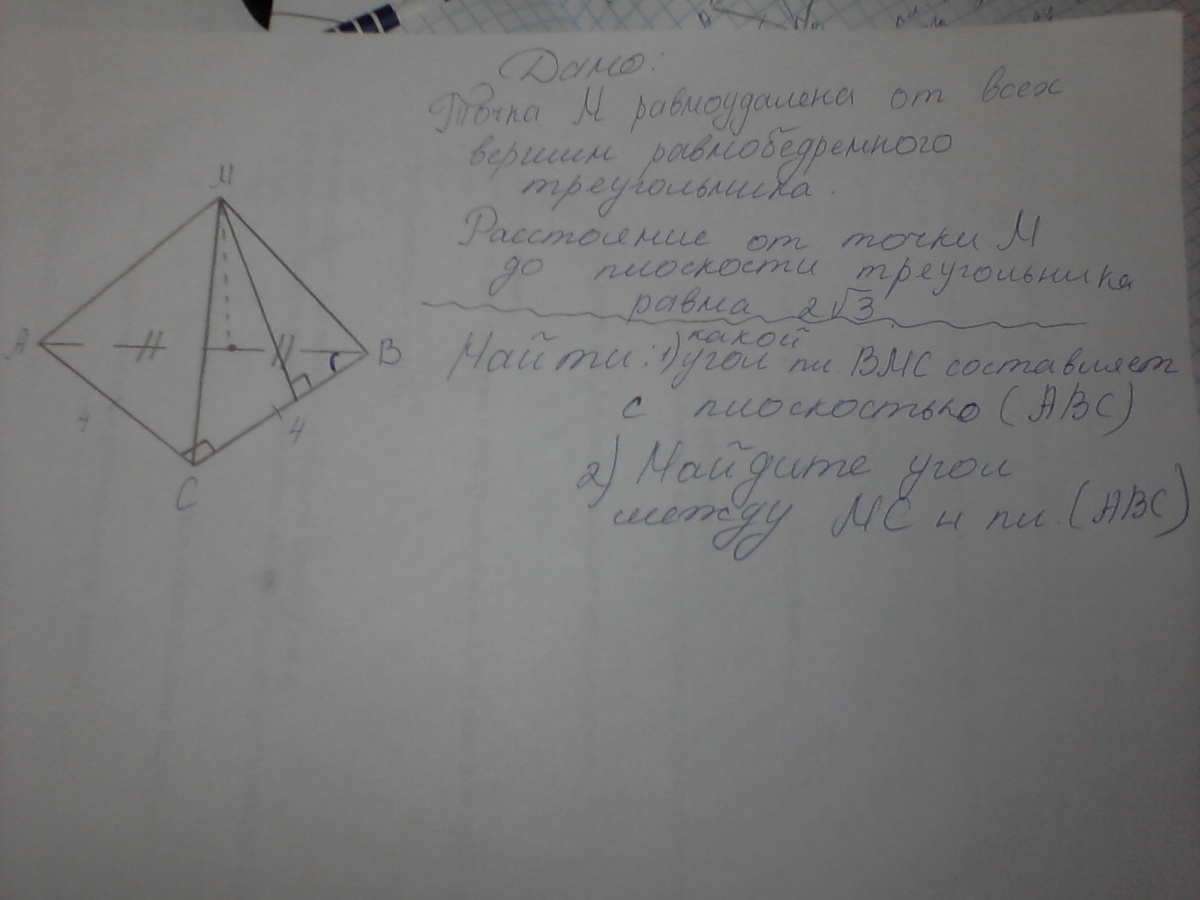 Дано:
Точка М равноудалена от всех
вершин равнобедренного
треугольника.
Расстояние от точки М
до плоскости треугольника
равна 2√3
Найти: 1) какой угол пл ВМС составляет
с плоскостью (АВС)
2) Найдите угол
между МС и пл. (АВС)
М
А
В
4
4
С